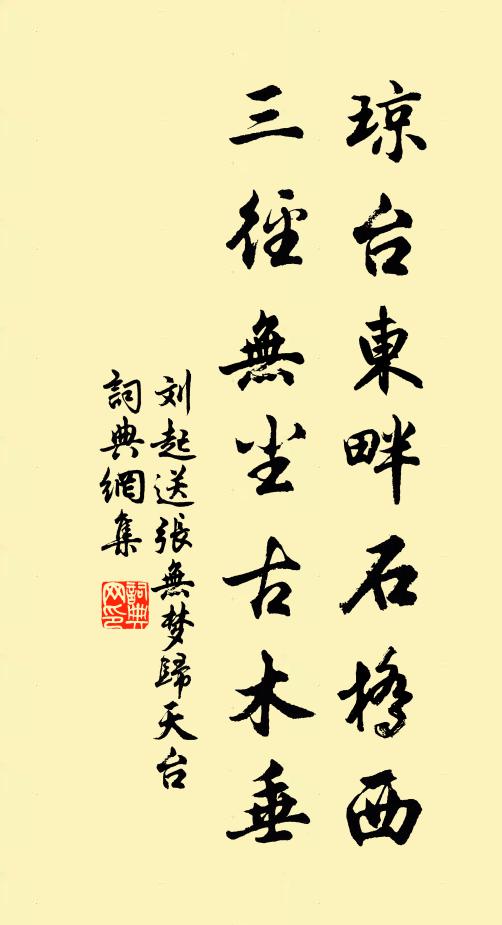 琼台東畔石橋西
三徑無尘古木垂
刘起送張無梦歸天台
詞典網集
詞典网印